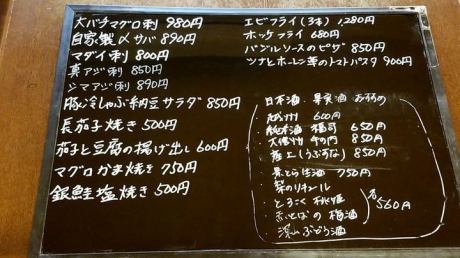 大バチマグロ刺 980円
自家製〆サバ 890円
マダイ刺 800円
真アジ刺 850円
シマアジ刺 890円
豚冷しゃぶ納豆サラダ 850円
長茄子焼き 500円
茄子と豆腐の揚げ出し 600円
マグロかま焼き 750円
銀鮭塩焼き 500円
エビフライ(3本) 1,280円
ホッケフライ 680円
バジルソースのピザ 850円
ツナとホーレン草のトマトパスタ 900円
日本酒・果実酒 おすすめ
600円
純米酒 650円
850円
産土(うぶすな) 850円
750円
・梨のリキュール
・とろこく桃姫
梅酒
・深山ぶどう酒
各560円